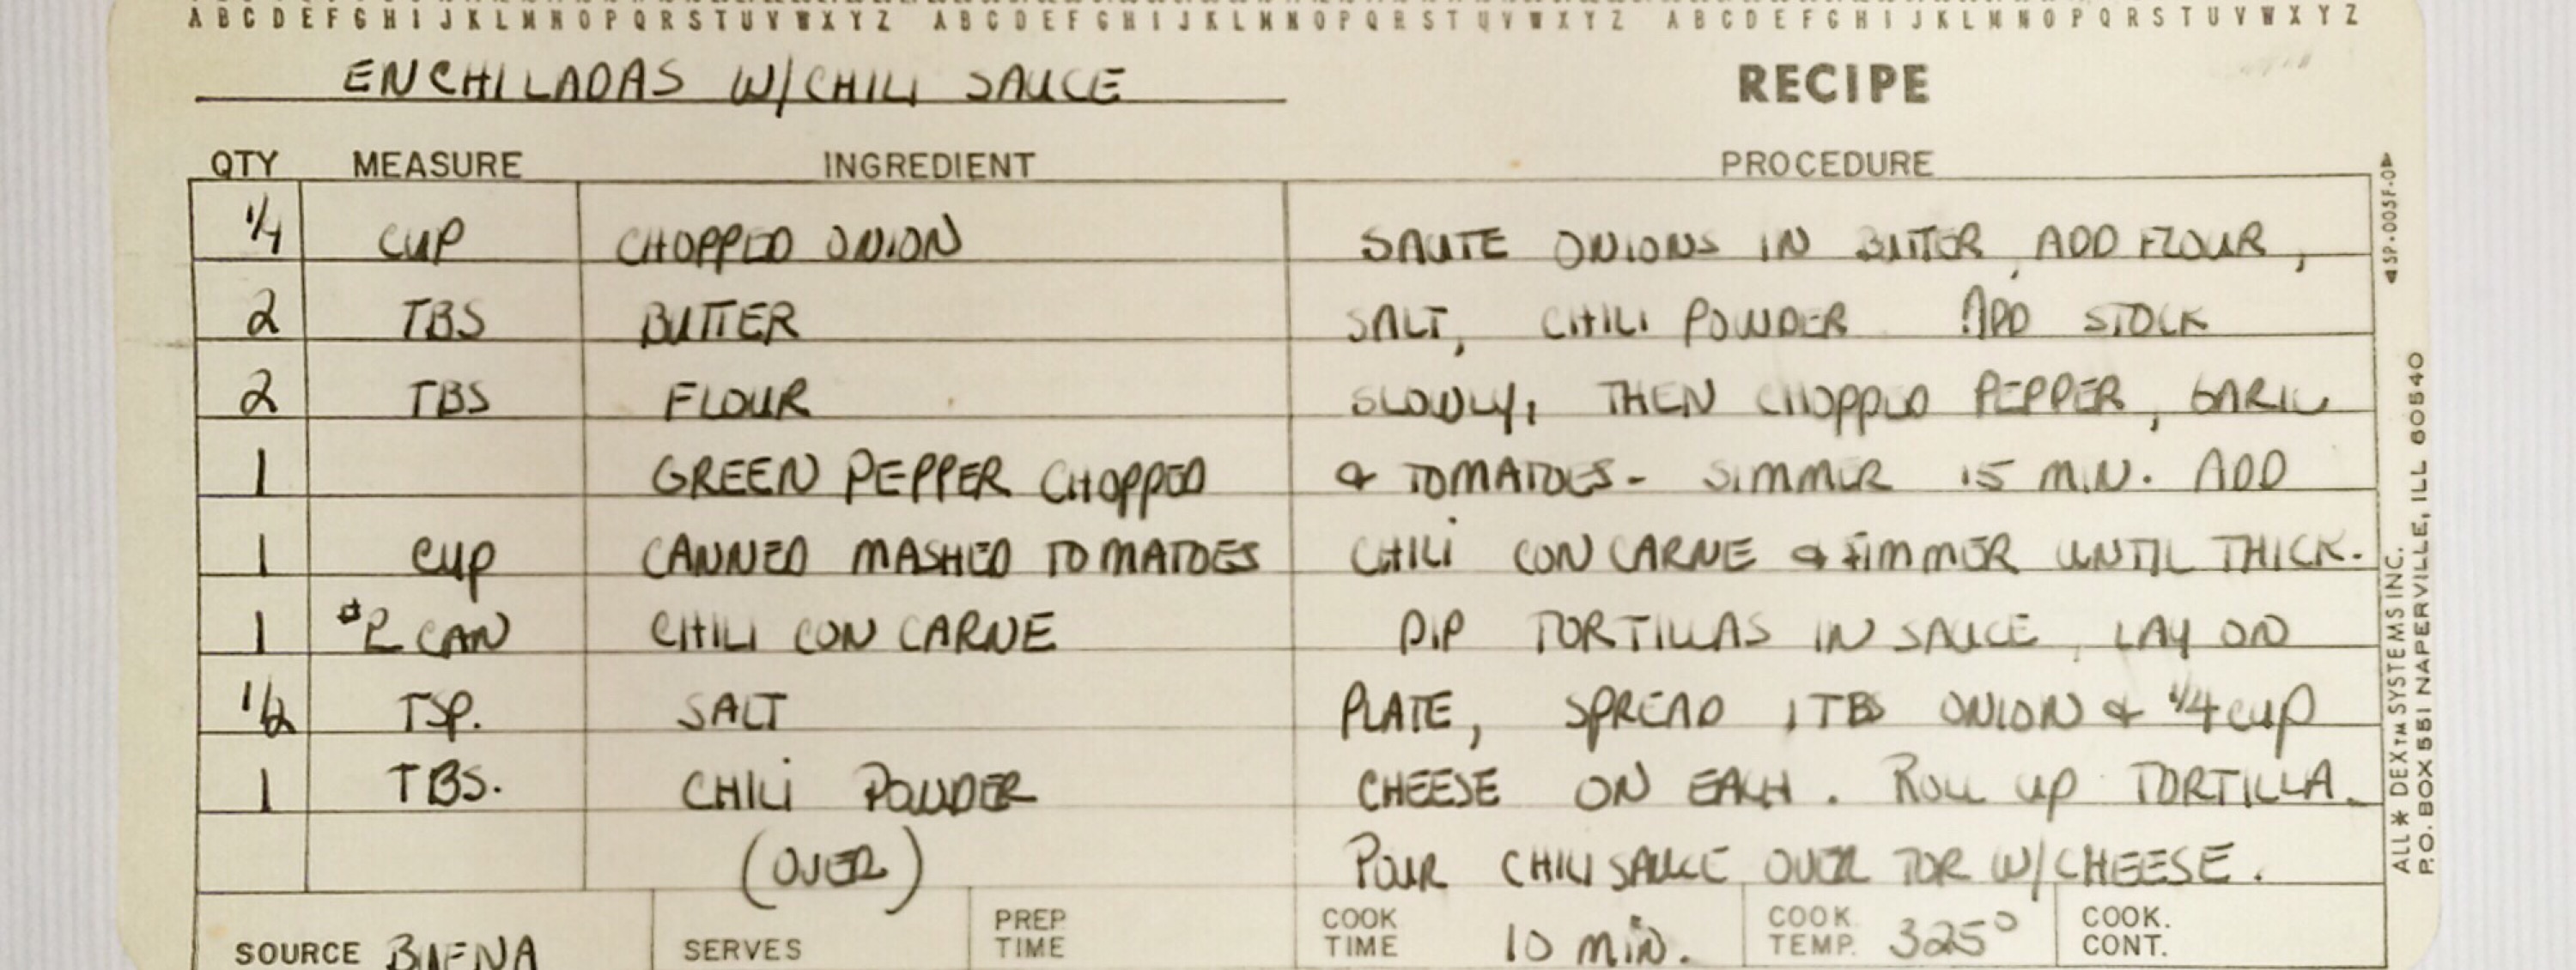 A B C D E F G H I J K L M N O P Q R S T U V W X Y Z A B C D E F G H I J K L M N O P Q R S T U V W X Y Z A B C D E F G H I J K L M N O P Q R S T U V W X Y Z
ENCHILADAS W/CHILI SAUCE RECIPE
QTY MEASURE INGREDIENT PROCEDURE
1/4 CUP CHOPPED ONION SAUTE ONIONS IN BUTTER, ADD FLOUR,
2 TBS BUTTER SALT, CHILI POWDER ADD STOCK
2 TBS FLOUR SLOWLY, THEN CHOPPED PEPPER, GARLIC
1 GREEN PEPPER CHOPPED & TOMATOES - SIMMER 15 MIN. ADD
1 CUP CANNED MASHED TOMATOES CHILI CON CARNE & SIMMER UNTIL THICK.
1 #2 CAN CHILI CON CARNE DIP TORTILLAS IN SAUCE, LAY ON
1/2 TSP. SALT PLATE, SPREAD 1 TB ONION & 1/4 CUP
1 TBS. CHILI POWDER CHEESE ON EACH. ROLL UP TORTILLA.
(OVER) POUR CHILI SAUCE OVER TOR W/CHEESE.
SOURCE BUENA SERVES PREP TIME COOK TIME 10 MIN. COOK TEMP. 325° COOK. CONT.
◄SP-005F-0▲
ALL✶DEX™ SYSTEMS INC.
P.O. BOX 551 NAPERVILLE, ILL 60540